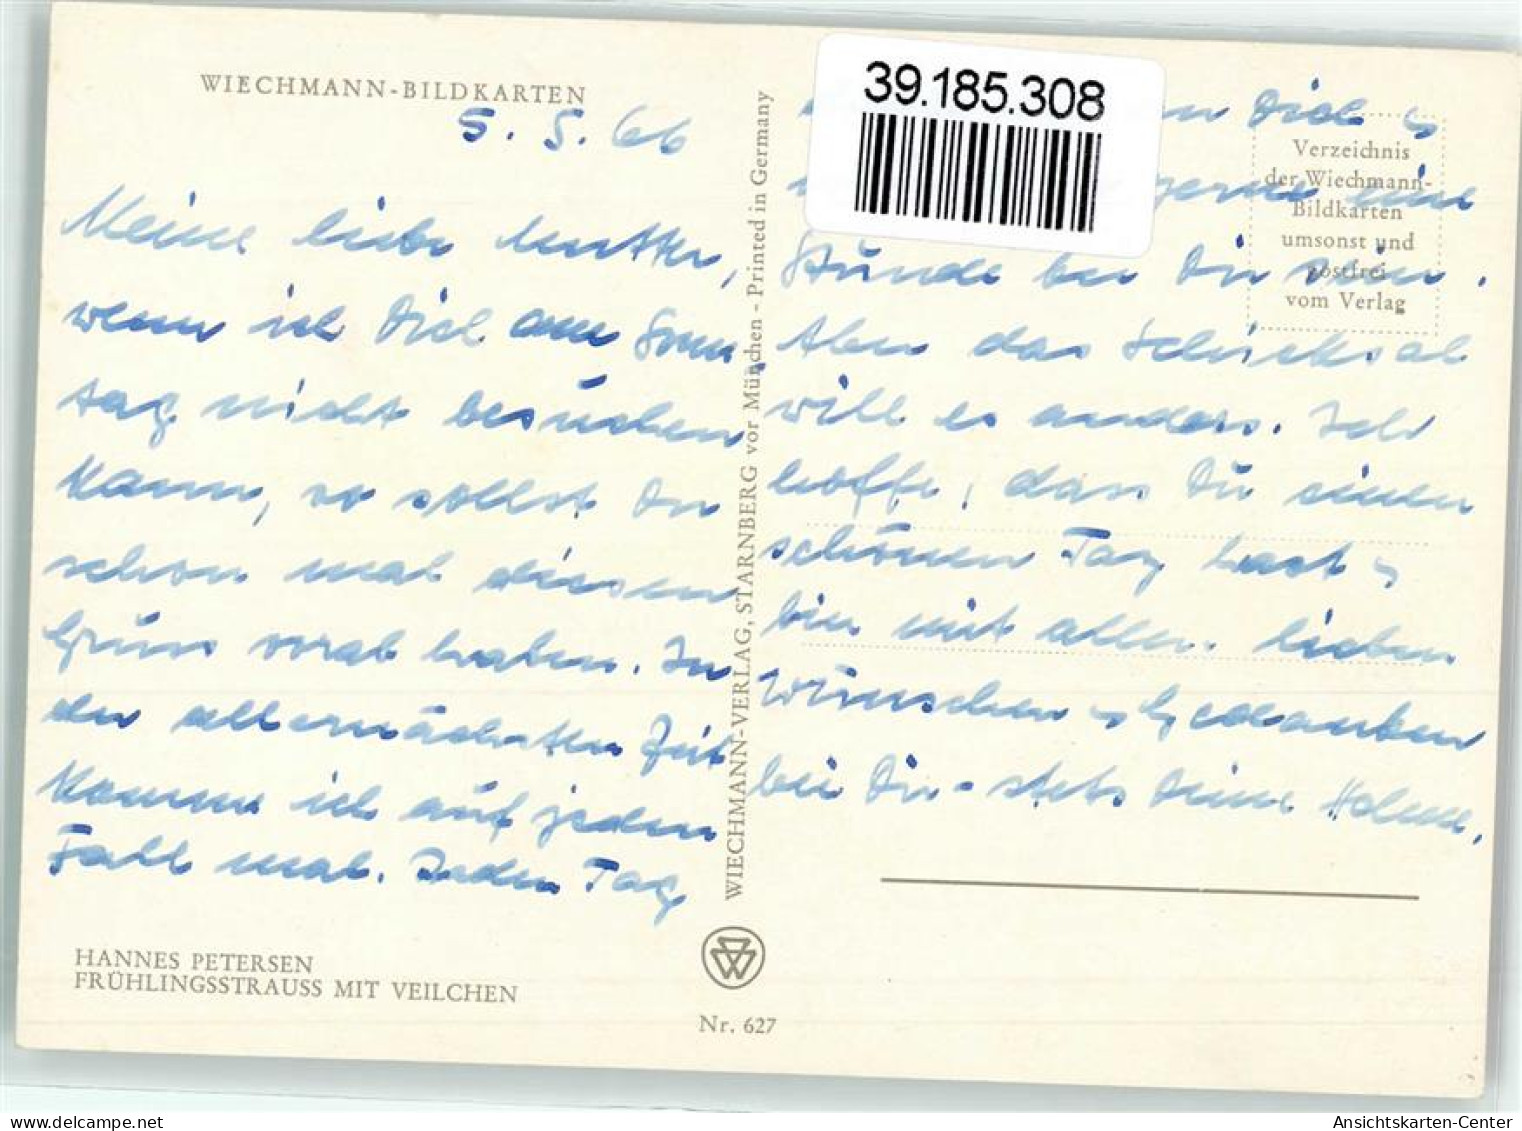 WIECHMANN-BILDKARTEN
5. 5. 66
Meine liebe Mutter,
wenn ich Dich am Sonn-
tag nicht besuchen
kann, so sollst Du
schon mal diesen
Gruss vorab haben. In
der allernächsten Zeit
komme ich auf jeden
Fall mal. Jeden Tag
HANNES PETERSEN
FRÜHLINGSSTRAUSS MIT VEILCHEN
WIECHMANN-VERLAG, STARNBERG vor München - Printed in Germany
Nr. 627
39.185.308
Dich
gerne eine
Stunde bei Dir sein.
Aber das Schicksal
will es anders. Ich
hoffe, dass Du einen
schönen Tag hast
bin mit allen lieben
Wünschen Gedanken
bei Dir - stets Deine
Verzeichnis
der Wiechmann-
Bildkarten
umsonst und
postfrei
vom Verlag
Ansichtskarten-Center